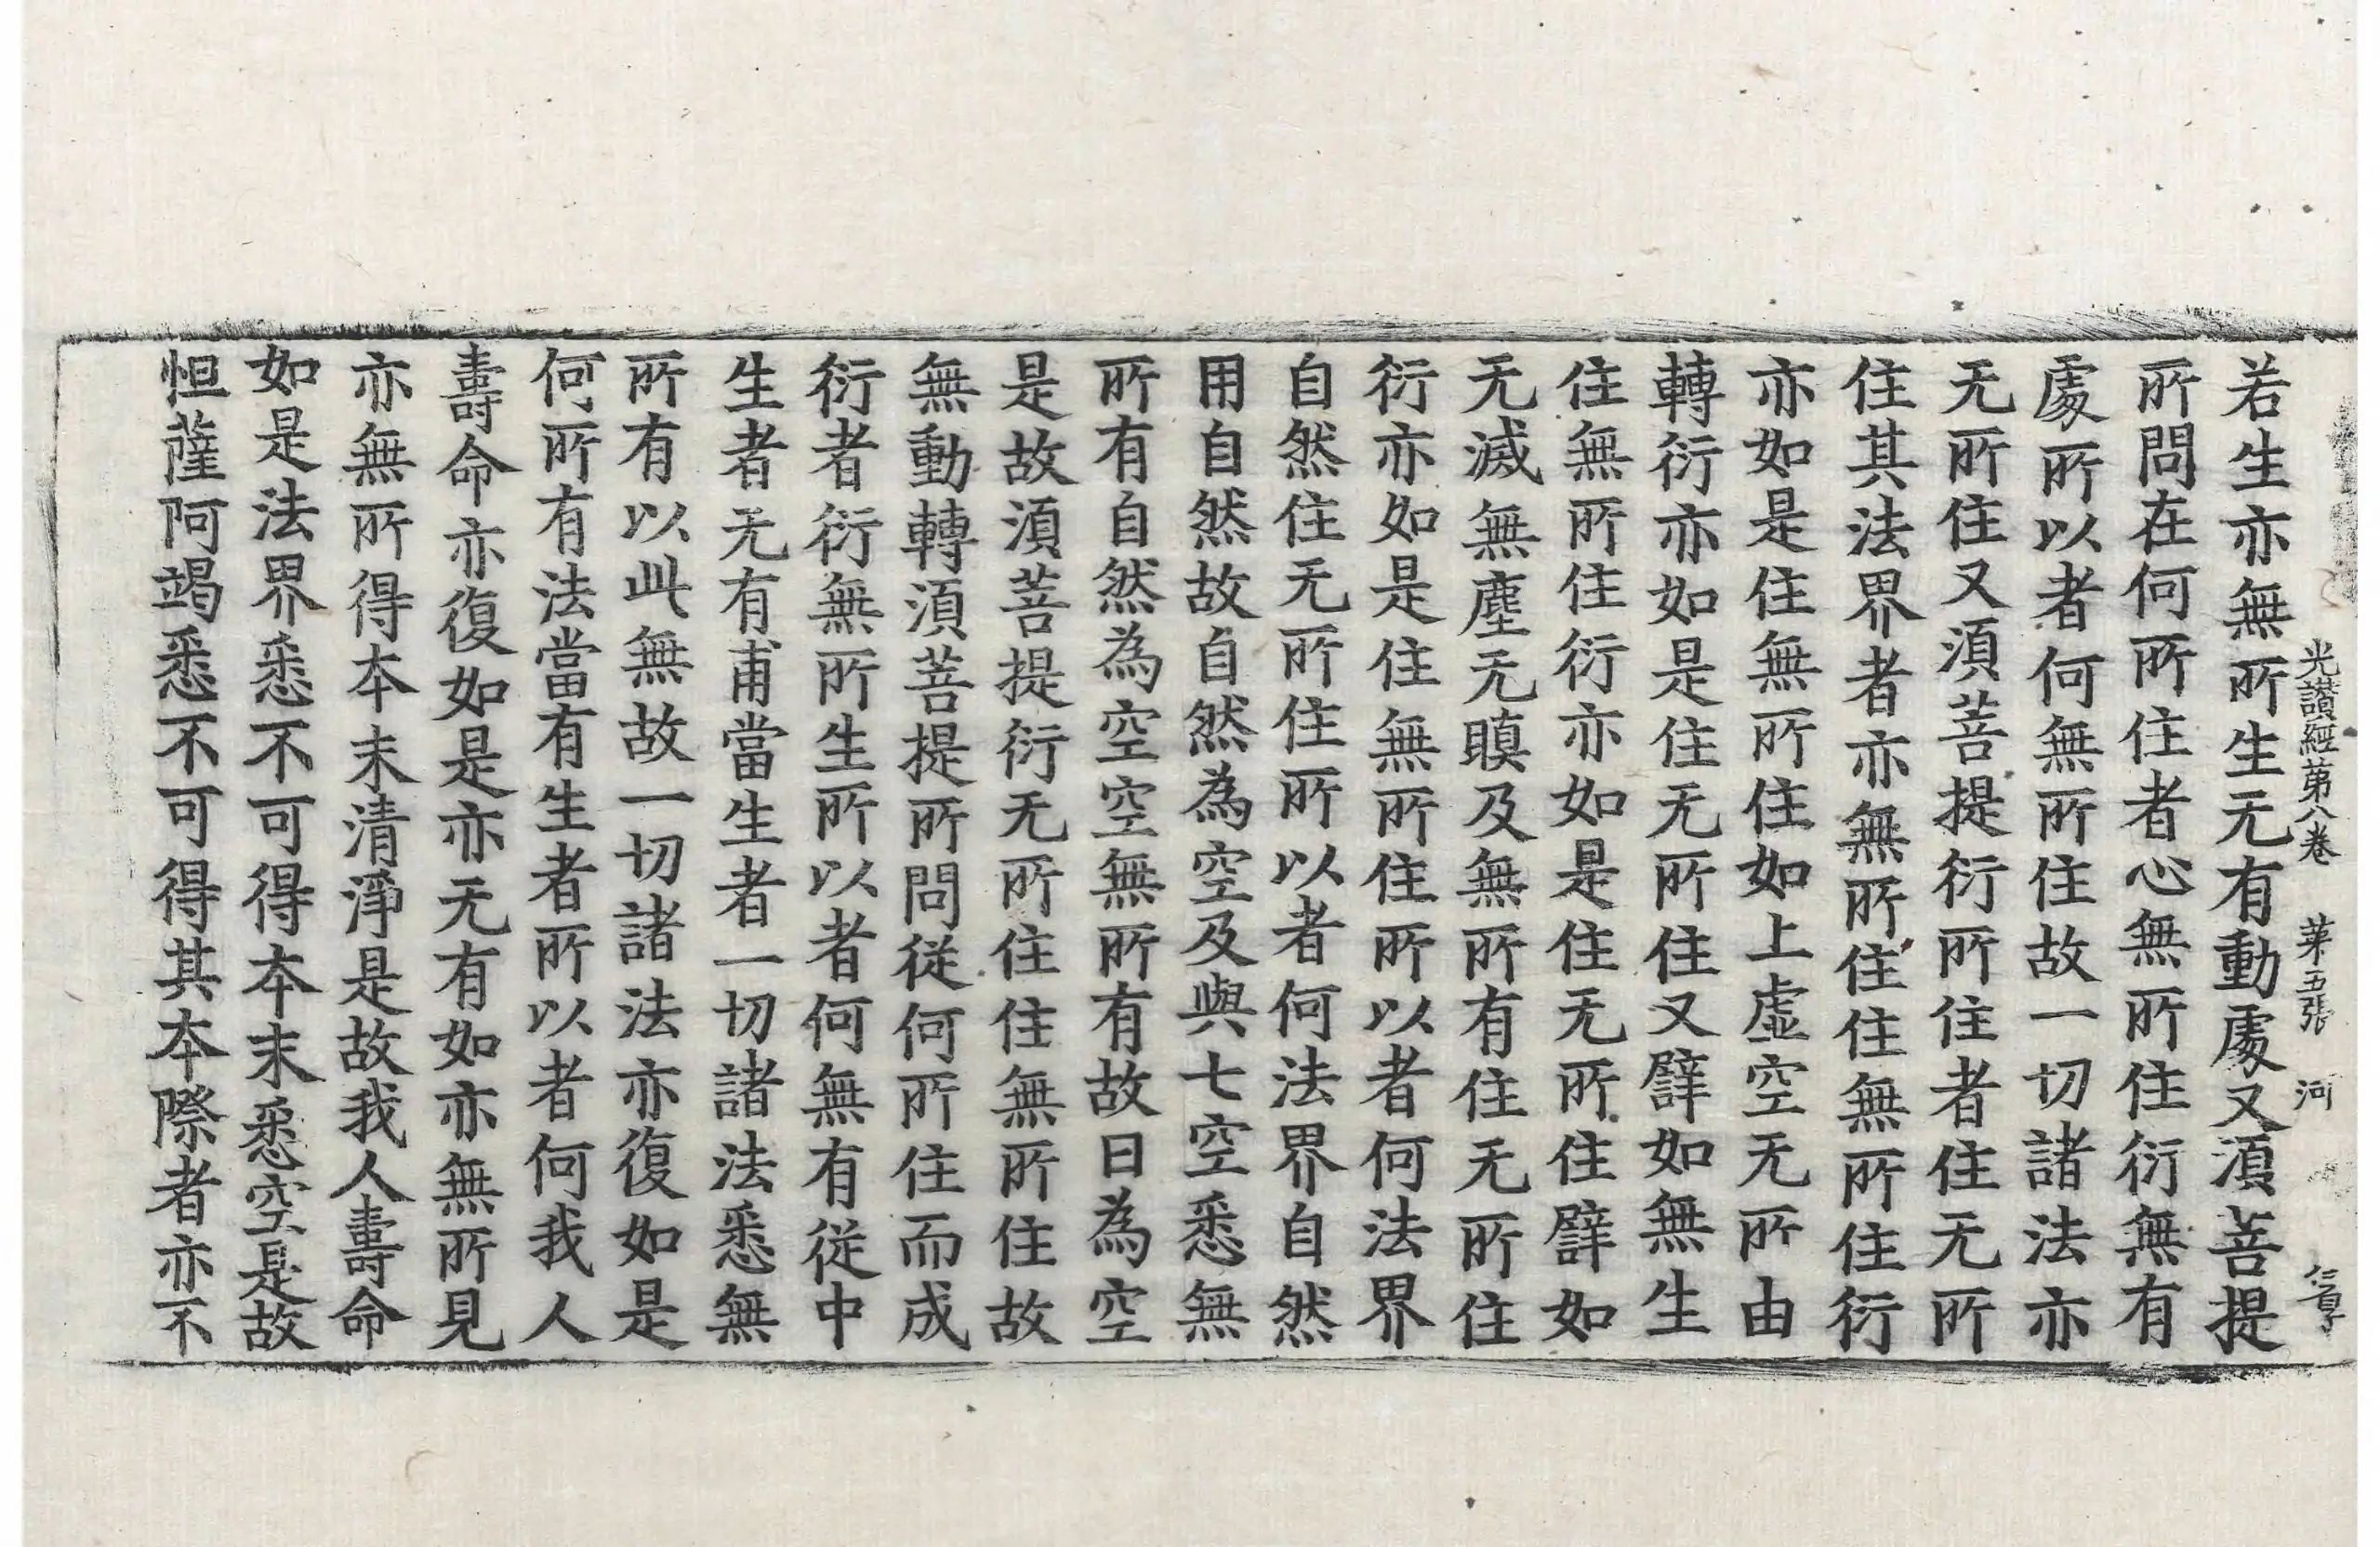 光讃經第八卷　第五張　河
若生亦無所生无有動處又須菩提
所問在何所住者心無所住衍無有
處所以者何無所住故一切諸法亦
无所住又須菩提衍所住者住无所
住其法界者亦無所住住無所住衍
亦如是住無所住如上虛空无所由
轉衍亦如是住无所住又譬如無生
住無所住衍亦如是住无所住譬如
无滅無塵无瞋及無所有住无所住
衍亦如是住無所住所以者何法界
自然住无所住所以者何法界自然
用自然故自然為空及與七空悉無
所有自然為空空無所有故曰為空
是故須菩提衍无所住住無所住故
無動轉須菩提所問從何所住而成
衍者衍無所生所以者何無有從中
生者无有甫當生者一切諸法悉無
所有以此無故一切諸法亦復如是
何所有法當有生者所以者何我人
壽命亦復如是亦无有如亦無所見
亦無所得本末清淨是故我人壽命
如是法界悉不可得本末悉空是故
怛薩阿竭悉不可得其本際者亦不